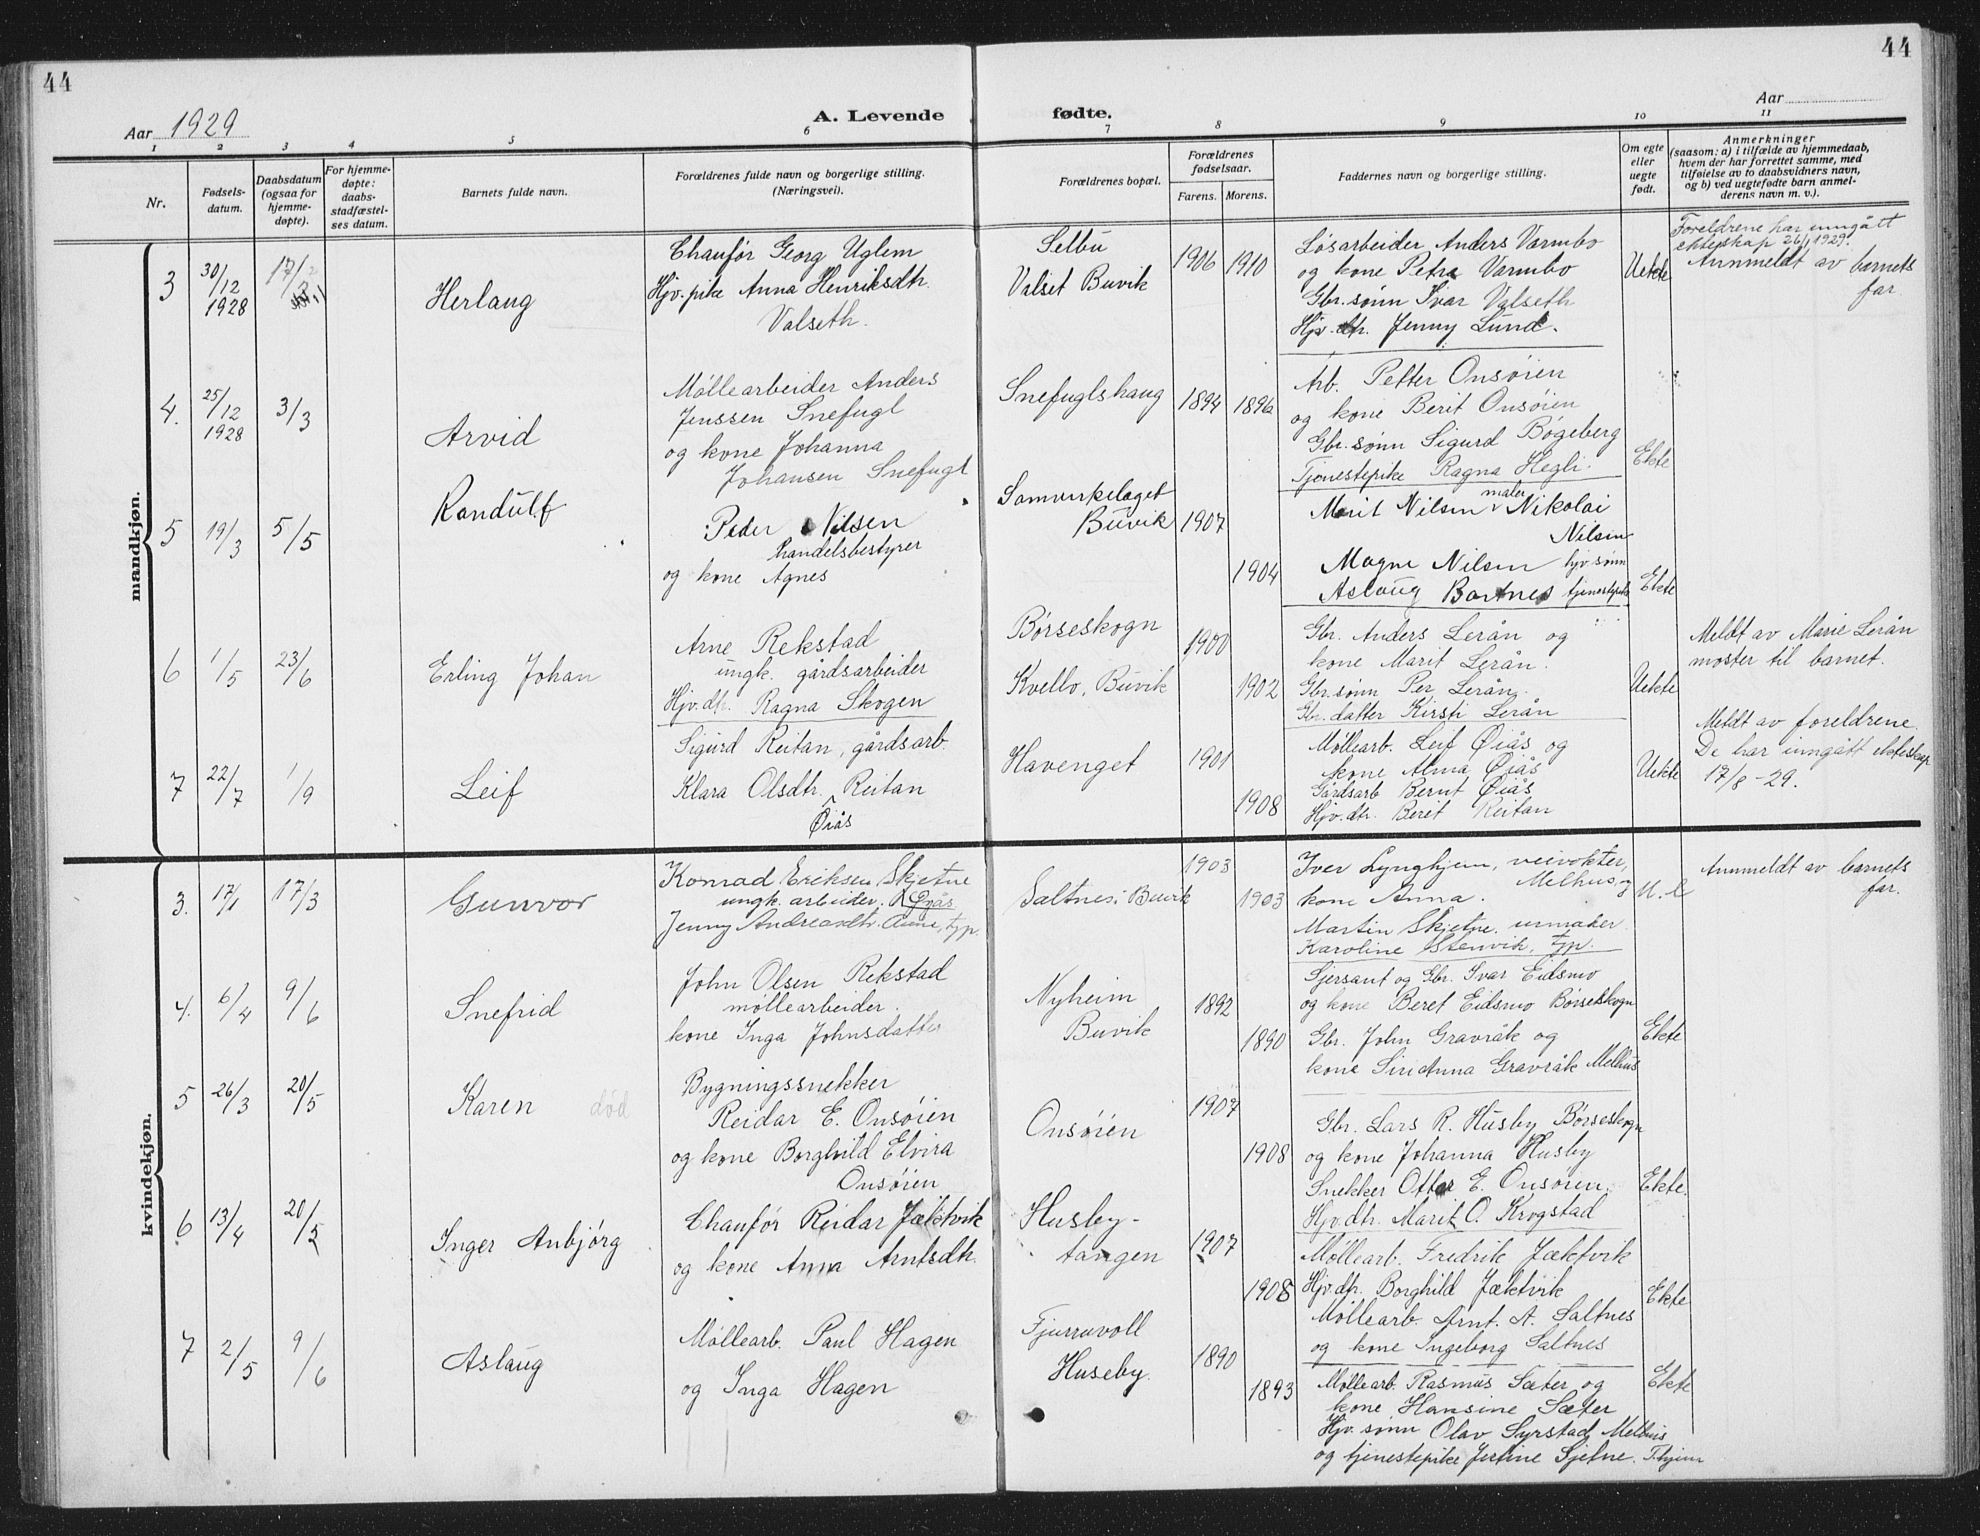 44
44
Aar 1929
A. Levende fødte.
Aar
1 2 3 4 5 6 7 8 9 10 11
Nr.
Fødsels-
datum.
Daabsdatum
(ogsaa for
hjemme-
døpte).
For hjemme-
døpte:
daabs-
stadfæstel-
ses datum.
Barnets fulde navn.
Forældrenes fulde navn og borgerlige stilling.
(Næringsvei).
Forældrenes bopæl.
Forældrenes
fødselsaar.
Farens. Morens.
Faddernes navn og borgerlige stilling.
Om egte
eller
uegte
født.
Anmerkninger
(saasom: a) i tilfælde av hjemmedaab,
hvem der har forrettet samme, med
tilføielse av to daabsvidners navn,
og b) ved uegtefødte barn anmel-
derens navn m. v.).
mandkjøn.
3
30/12
1928
17/2
Herlaug
Chaufør Georg Uglem
Hjv. pike Anna Henriksdtr.
Valseth.
Selbu
Valset Buvik
1906 1910
Løsarbeider Anders Varmbo
og kone Petra Varmbo
Gbr. sønn Ivar Valseth
Hjv. dtr. Jenny Lund.
Uekte
Foreldrene har inngått
ekteskap 26/1 1929.
Annmeldt av barnets
far.
4.
25/12
1928
3/3
Arvid
Møllearbeider Anders
Jenssen Snefugl
og kone Johanna
Johansen Snefugl
Snefuglshaug
1894 1896
Arb. Petter Onsøien
og kone Berit Onsøien
Gbr. sønn Sigurd Bøgeberg
Tjenestepike Ragna Hegli.
Ekte
5
19/3
5/5
Randulf
Peder Nilsen
handelsbestyrer
og kone Agnes
Samvirkelaget
Buvik
1907
1904
Marit Nilsen, maler Nikolai
Nilsen
Magne Nilsen hjv. sønn
Aslaug Bortnes tjenestepike
Ekte
6
1/5
23/6
Erling Johan
Arne Rekstad
ungk. gårdsarbeider
Hjv. dtr. Ragna Skogen
Børseskogn
Kvello, Buvik
1900
1902
Gbr. Anders Lerån og
kone Marit Lerån.
Gbr. sønn Per Lerån.
Gbr. datter Kirsti Lerån
Uekte
Meldt av Marie Lerån
moster til barnet.
7
22/7
1/9
Leif
Sigurd Reitan, gårdsarb.
Klara Olsdtr. Reitan
Øiås
Havenget
1901
1908
Møllearb. Leif Øiås og
kone Alma Øiås
Gårdsarb Bernt Øiås
Hjv. dtr. Berit Reitan
Uekte
Meldt av foreldrene
De har inngått ekteskap
17/8-29.
kvindekjøn.
3.
17/1
17/3
Gunvor
Konrad Eriksen Skjetne
ungk. arbeider.
Jenny Andreasdtr. Aune, typ.
Saltnes, Buvik
1903
1903
Iver Lynghjem, veivokter,
Melhus, og
kone Anna.
Martin Skjetne, urmaker.
Karoline Stenvik, typ.
U. e
Annmeldt av barnets
far.
4.
6/4
9/6
Snefrid
John Olsen Rekstad
møllearbeider.
kone Inga Johnsdatter
Nyheim
Buvik
1892
1890
Sjersant og Gbr. Ivar Eidsmo
og kone Beret Eidsmo Børseskogn
Gbr. John Gravråk og
kone Siri Anna Gravråk Melhus
Ekte
5
26/3
20/5
Karen død
Bygningssnekker
Reidar E. Onsøien
og kone Borghild Elvira
Onsøien
Onsøien
1907
1908
Gbr. Lars R. Husby Børseskogn
og kone Johanna Husby
Snekker Ottar E. Onsøien.
Hjv. dtr. Marit O. Krogstad
Ekte.
6
13/4
20/5
Inger Anbjørg
Chaufør Reidar Jæktvik
og kone Anna Arntsdtr.
Husby-
tangen
1907
1908
Møllearb. Fredrik Jæktvik
Hjv. dtr. Borghild Jæktvik
Møllearb. Arnt. A. Saltnes
og kone Ingeborg Saltnes
Ekte
7
2/5
9/6
Aslaug
Møllearb. Paul Hagen
og Inga Hagen
Fjurruvoll
Huseby.
1890
1893
Møllearb. Rasmus Sæter og
kone Hansine Sæter
Hjv. sønn Olav Syrstad Melhus
og tjenestepike Jertine Sjetne.
Ekte